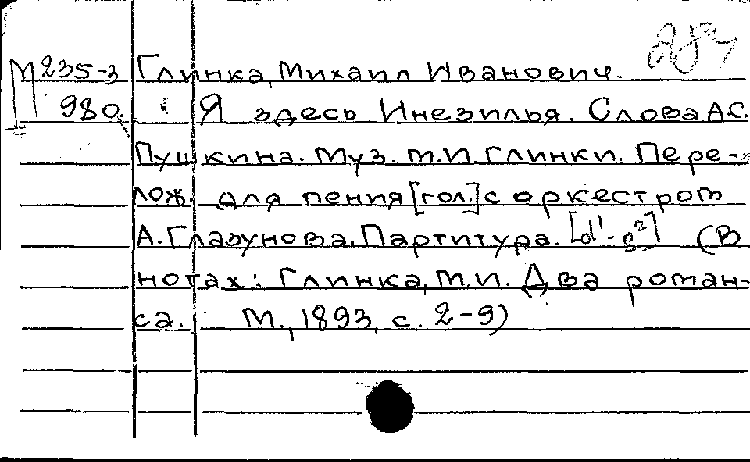 М 235-3 Глинка, Михаил Иванович.
980. Я здесь Инезилья. Слова А.С.
Пушкина. Муз. М.И. Глинки. Пере-
лож. для пения [гол.] с оркестром
А. Глазунова. Партитура. [d¹-g²] (В
нотах: Глинка, М.И. Два роман-
са. М., 1893, с. 2-9)